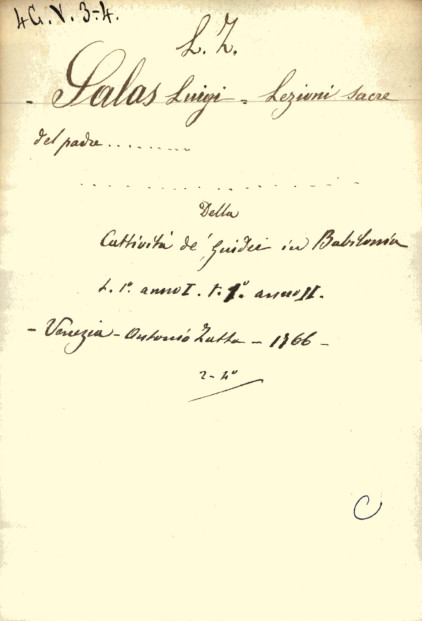 4G.V.3-4.
L. Z.
- Salas Luigi = Lezioni sacre
del padre .........
..............
Della
Cattività de' Giudei in Babilonia
t. 1º. anno I. t. 1º. anno II.
- Venezia - Antonio Zatta - 1766 -
2 - 4º
C